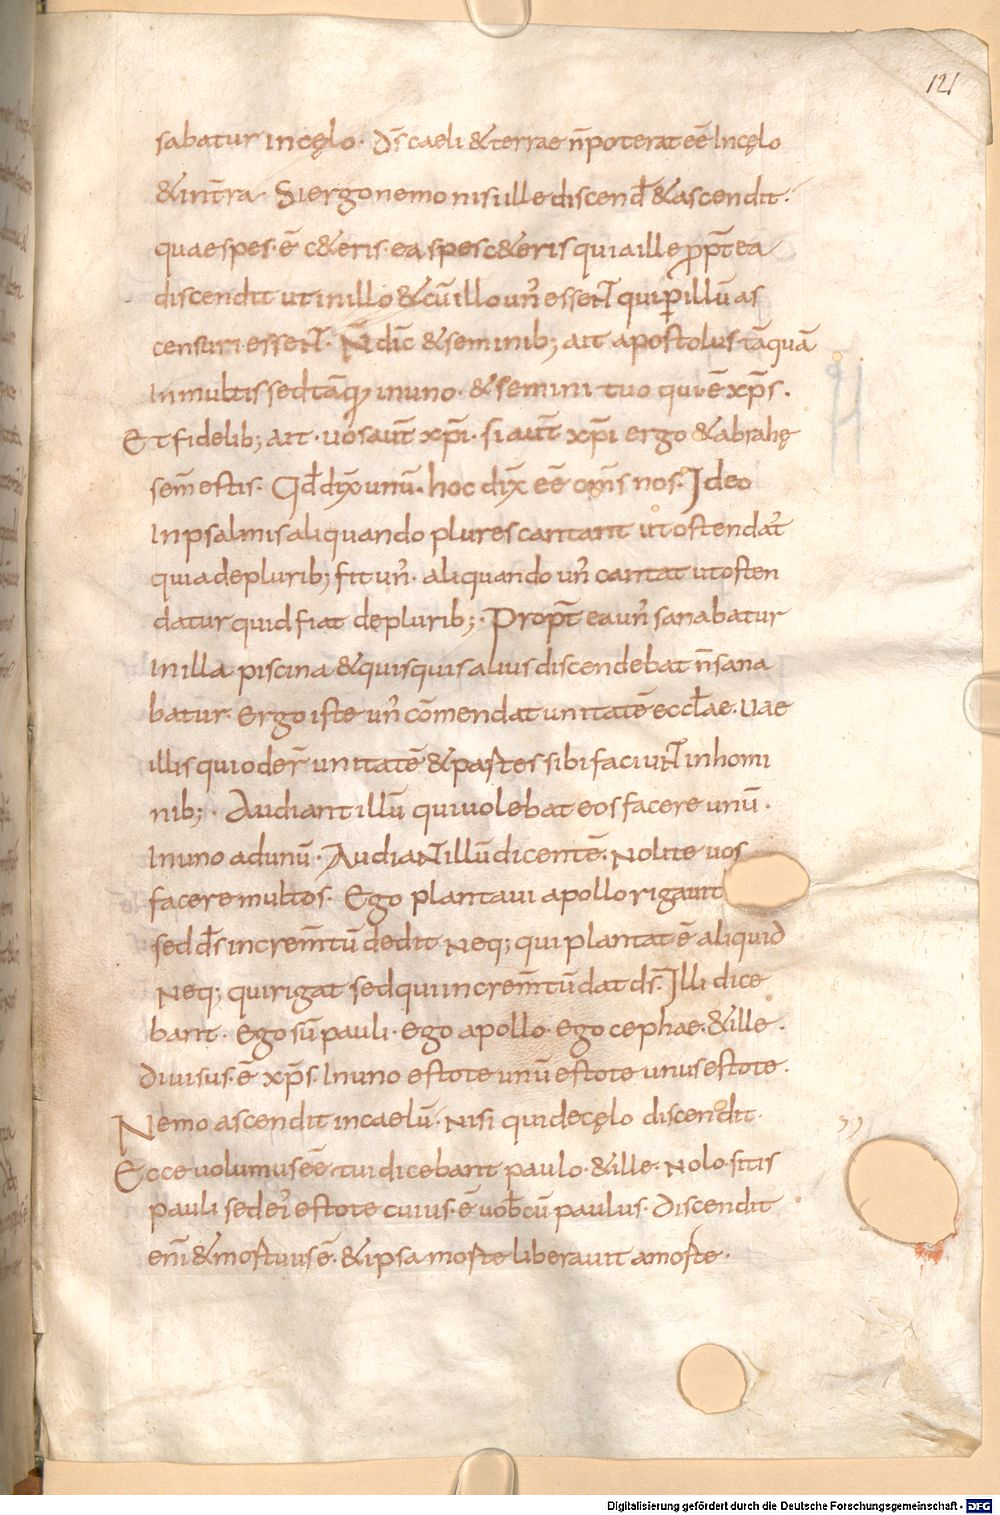 121
sabatur in cęlo. d̅s caeli & terrae n̅ poterat ee̅ In cęlo
& in t̅ra. Si ergo nemo nisi ille discend̅ & ascendit.
quae spes.e̅ c&eris. ea spes c&eris quia ille ꝓpt̅ea
discendit ut in illo & cu̅ illo un̅ essent qui ꝑ illu̅ as
censuri essent. N̅ dic̅ & seminib; ait apostolus ta̅qua̅
In multis sed ta̅q̅ in uno. & semini tuo qui.e̅ xp̅s.
Et fidelib; ait. uos aut̅ xp̅i. si aut̅ xp̅i ergo & abrahę
sem̅ estis. Qd̅ dix̅ unu̅. hoc dix̅ ee̅ om̅s nos. Ideo
In psalmis aliquando plures cantant ut ostendat̅
quia de plurib; fit un̅. aliquando un̅ cantat ut osten
datur quid fiat de plurib;. Propt̅ ea un̅ sanabatur
In illa piscina & quisquis alius discendebat n̅ sana
batur. Ergo iste un̅ co̅mendat unitate̅ eccl̅ae. Uae
illis qui oder̅ unitate̅ & partes sibi faciunt in homi
nib;. Audiant illu̅ qui uolebat eos facere unu̅.
In uno ad unu̅. Audiant illu̅ dicente̅. Nolite uos
facere multos. Ego plantaui apollo rigauit
sed d̅s increm̅tu̅ dedit Neq; qui plantat e̅ aliquid
Neq; qui rigat sed qui increm̅tu̅ dat d̅s. Illi dice
bant. Ego su̅ pauli. ego apollo. ego cephae. & ille.
Diuisus.e̅ xp̅s. In uno estote unu̅ estote unus estote.
Nemo ascendit in caelu̅. Nisi qui de cęlo discendit.
Ecce uolumus ee̅. tui dicebant paulo. & ille. Nolo. sitis
pauli sed ei̅ estote cuius.e̅ uob̅cu̅ paulus. Discendit
eni̅ & mortuus e̅. & ipsa morte liberauit a morte.
Digitalisierung gefördert durch die Deutsche Forschungsgemeinschaft - DFG